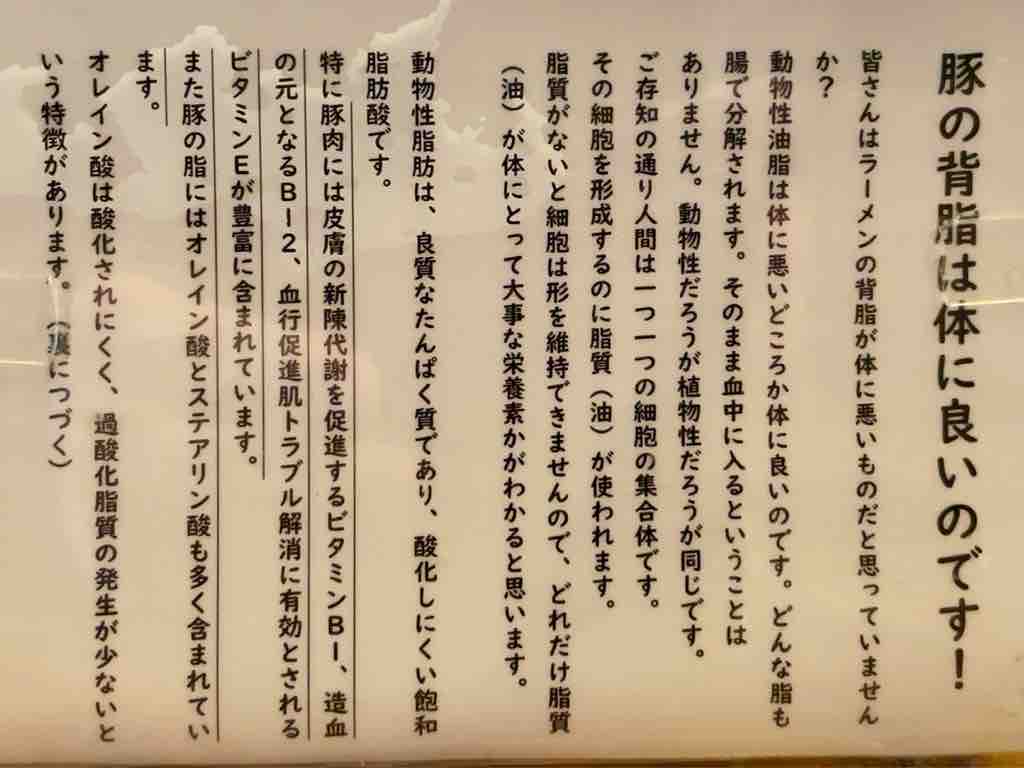 豚の背脂は体に良いのです！
皆さんはラーメンの背脂が体に悪いものだと思っていません
か？
動物性油脂は体に悪いどころか体に良いのです。どんな脂も
腸で分解されます。そのまま血中に入るということは
ありません。動物性だろうが植物性だろうが同じです。
ご存知の通り人間は一つ一つの細胞の集合体です。
その細胞を形成するのに脂質（油）が使われます。
脂質がないと細胞は形を維持できませんので、どれだけ脂質
（油）が体にとって大事な栄養素かがわかると思います。
動物性脂肪は、良質なたんぱく質であり、酸化しにくい飽和
脂肪酸です。
特に豚肉には皮膚の新陳代謝を促進するビタミンB1、造血
の元となるB12、血行促進肌トラブル解消に有効とされる
ビタミンEが豊富に含まれています。
また豚の脂にはオレイン酸とステアリン酸も多く含まれてい
ます。
オレイン酸は酸化されにくく、過酸化脂質の発生が少ないと
いう特徴があります。（裏につづく）